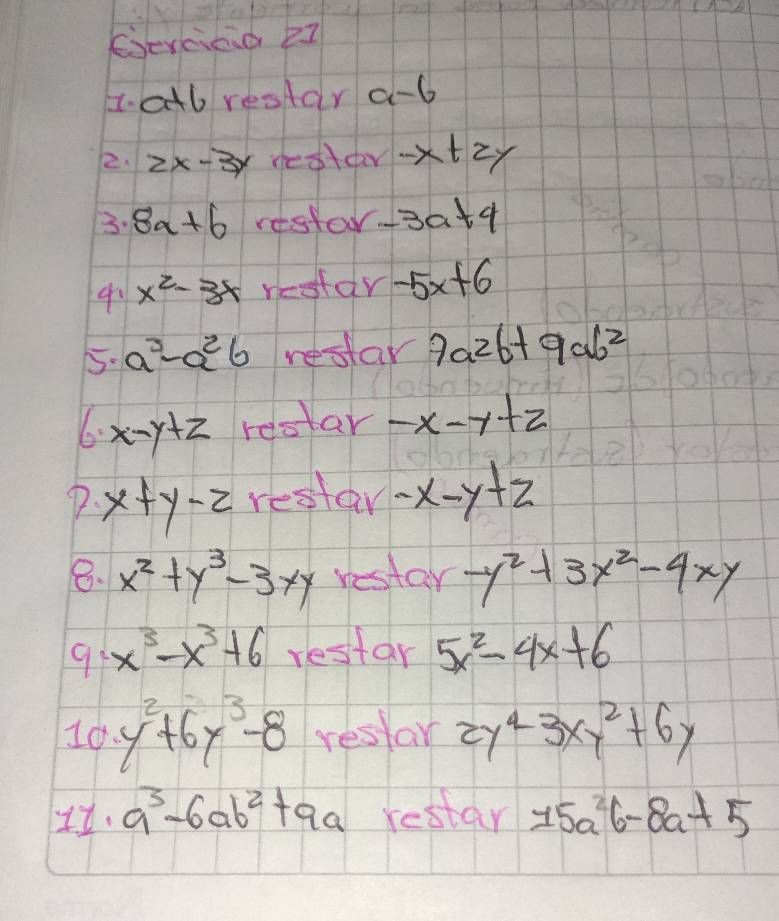 Ejercicio 21
1. a+b restar a-b
2. 2x-3y restar -x+2y
3. 8a+b restar -3a+4
4. x²-3x restar -5x+6
5. a³-a²b restar 7a2b+9ab²
6. x-y+z restar -x-y+z
7. x+y-z restar -x-y+z
8. x²+y³-3xy restar -y²+3x²-4xy
9. x³-x³+6 restar 5x²-4x+6
10. y²+6y³-8 restar 2y⁴-3xy²+6y
11. a³-6ab²+9a restar 15a²b-8a+5